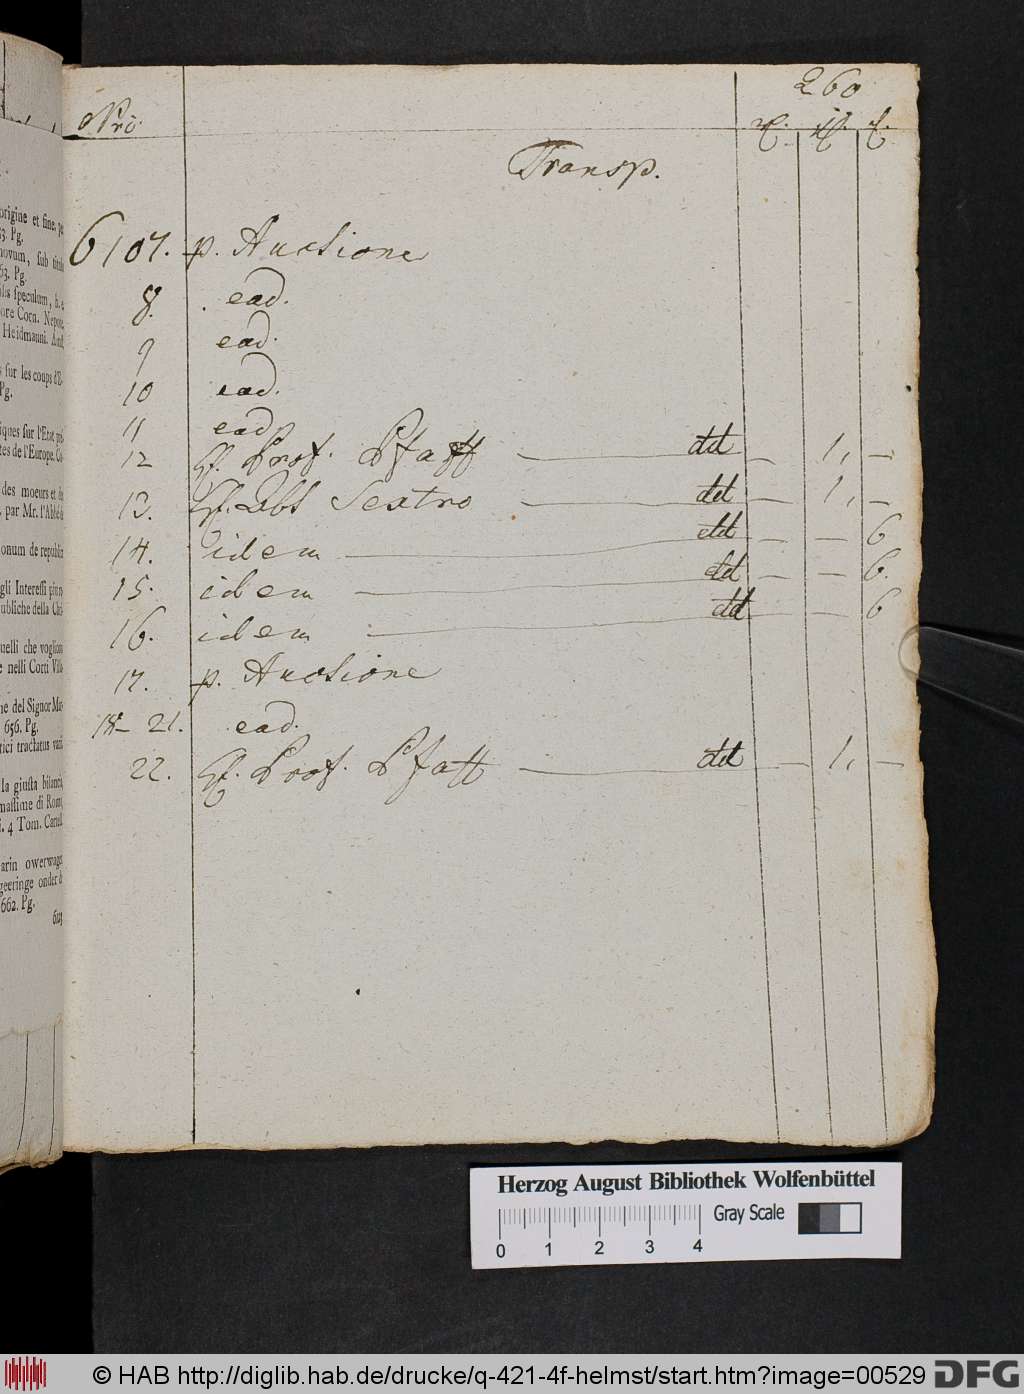 260
Nrō.
Transp.
6107. p. Auctione
8. ead.
9 ead.
10 ead.
11 ead.
12 Prof. Pfaff dd — 1, —
13. Abt dd — 1, —
14. idem dd — — 6
15. idem dd — — 6.
16. idem dd — — 6
17. p. Auctione
18 – 21. ead.
22. Prof. Pfaff dd — 1, —
origine et fine, pe
3. Pg.
novum, sub titulo
63. Pg.
speculum, h. e.
ore Corn. Nepote,
Heidmanni. Amst,
s sur les coups d'E-
Pg.
iques sur l'Etat pré-
tes de l'Europe. Co-
des moeurs et du
par Mr. l'Abbé de
onum de republica
gli Interessi piu no
ubliche della Chi-
uelli che vogliono
e nelli Corti Ville
ne del Signor Ma-
656. Pg.
tici tractatus varii
la giusta bilancia
massime di Roma,
i. 4 Tom. Castell.
arin overwaget
geeringe onder de
662. Pg.
6123
Herzog August Bibliothek Wolfenbüttel
Gray Scale
0 1 2 3 4
© HAB http://diglib.hab.de/drucke/q-421-4f-helmst/start.htm?image=00529
DFG